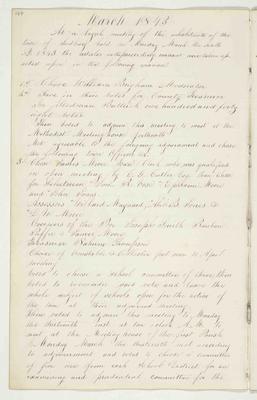 March 1843
At a legal meeting of the inhabitants of the
town of Sudbury held on Monday March the sixth
AD 1843 the articles in the warrant were taken up
acted upon in the following manner
1st Chose William Brigham Moderator
2d Gave in their votes for County Treasurer
one hundred and forty
eight votes
Then voted to adjourn this meeting to meet at the
Methodist Meeting house forthwith
Met agreeable to the foregoing adjournment and chose
the following town officers
3 Chose James Moore Town Clerk who was qualified
in open meeting by C. G. Cutler Esq then chose
for Selectmen Ephraim Moore
and John
Assessors Richard Hayward
Moore
Overseers of the Poor Smith Reuben
Puffer & James Moore
Treasurer Nahum Thompson
Choice of Constable & Collector put over to April
meeting
Voted to choose a School committee of three then
voted to reconsider said vote and leave the
whole subject of schools open for the action of
the town at their adjourned meeting
Then voted to adjourn this meeting to Monday
the thirteenth inst at ten o'clock A.M. to
meet at the Meeting house of the first Parish
Monday March the thirteenth met according
to adjournment and voted to choose a committee
of five one from each School District for an
and prudential committee for the